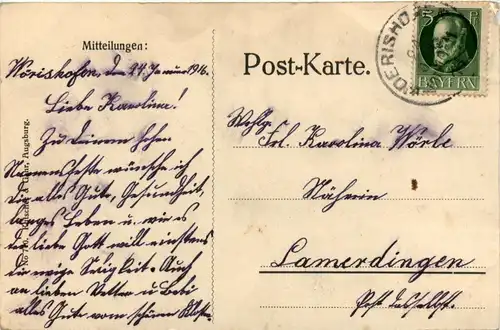 Mitteilungen:
Wörishofen, den 24. Januar 1916.
Liebe Karolina!
Zu Deinem hohen
Namensfeste wünsche ich
Dir alles Gute, Gesundheit,
langes Leben u. wie es
der liebe Gott will einstens
die ewige Seligkeit. Auch
an lieben Vetter u. Bebi
alles Gute vom schönen
Augsburg.
Post-Karte.
WOERISHO
5 PF
BAYERN
Wohlg.
Frl. Karolina Wörle
Näherin
Lamerdingen
Post daselbst.